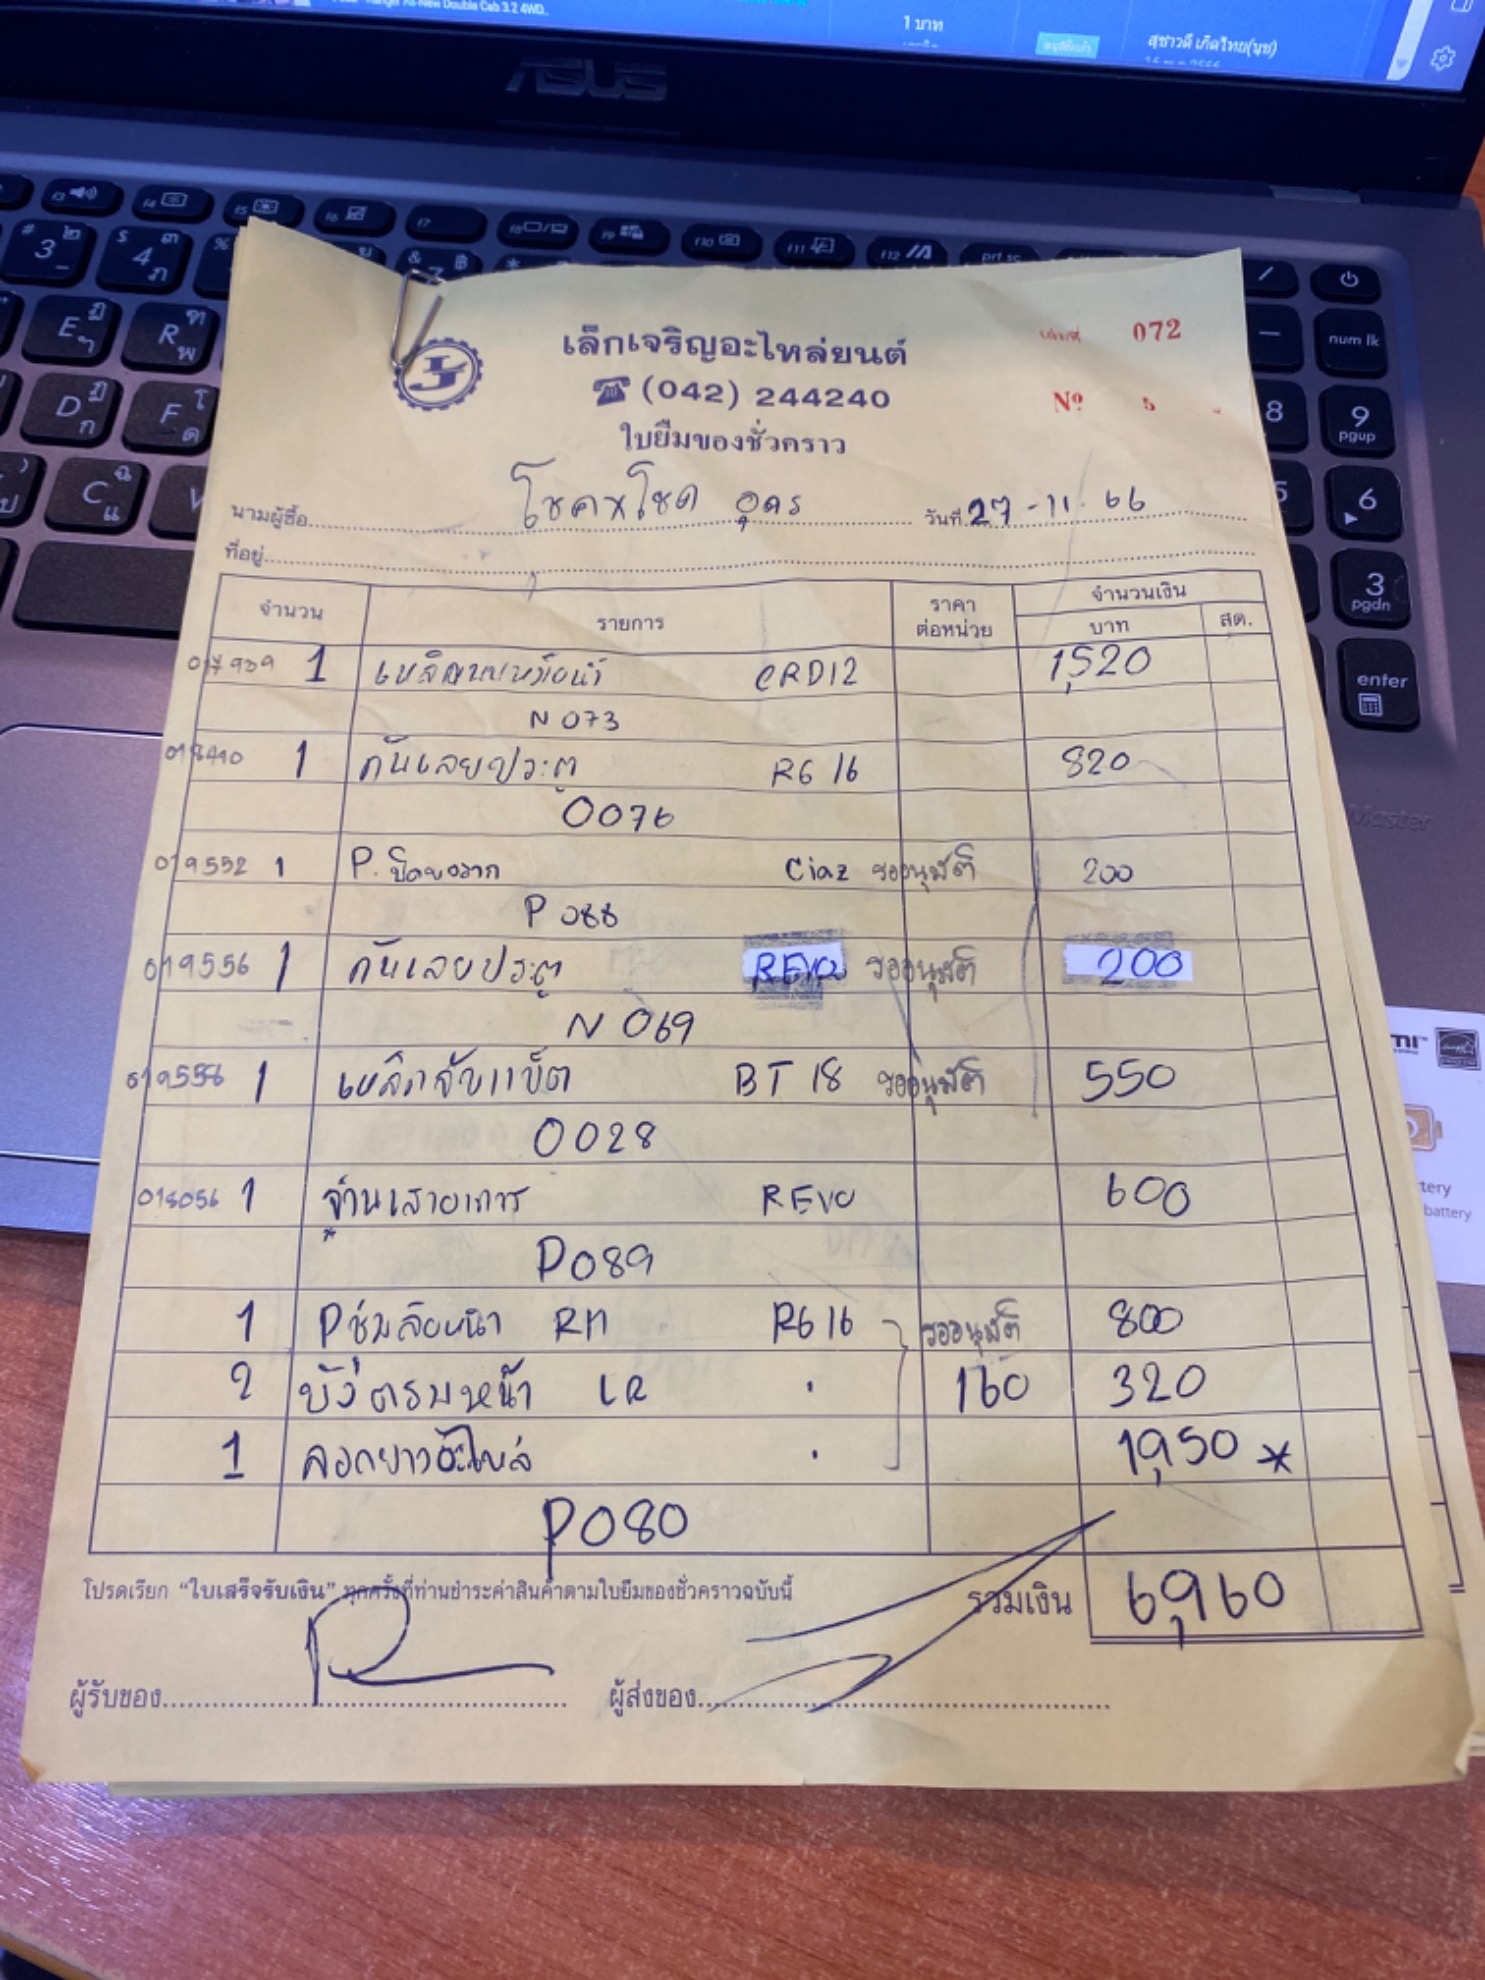 Ranger All-New Double Cab 3.2 4WD..
1 บาท
สุชาวดี เกิดไทย(นุช)
ASUS
เล็กเจริญอะไหล่ยนต์
เล่มที่ 072
☎ (042) 244240
Nº 5
ใบยืมของชั่วคราว
นามผู้ซื้อ โชคxโชค อุดร วันที่ 27-11-66
ที่อยู่
จำนวน รายการ ราคาต่อหน่วย จำนวนเงิน
บาท สต.
017939 1 CRD12 1,520
N 073
018410 1 กันเลยประตู RG 16 820
0076
019552 1 P. Ciaz รออนุมัติ 200
P 088
019556 1 กันเลยประตู REVO รออนุมัติ 200
N 069
019558 1 เหล็กจับแบ็ต BT 18 รออนุมัติ 550
0028
018056 1 REVO 600
P089
1 Pซุ้มล้อหน้า RH RG 16 รออนุมัติ 800
2 บังตรมหน้า LR 160 320
1 ลอกยางอะไหล่ 1,950 *
P080
โปรดเรียก “ใบเสร็จรับเงิน” ทุกครั้งที่ท่านชำระค่าสินค้าตามใบยืมของชั่วคราวฉบับนี้ รวมเงิน 6,960
ผู้รับของ ผู้ส่งของ